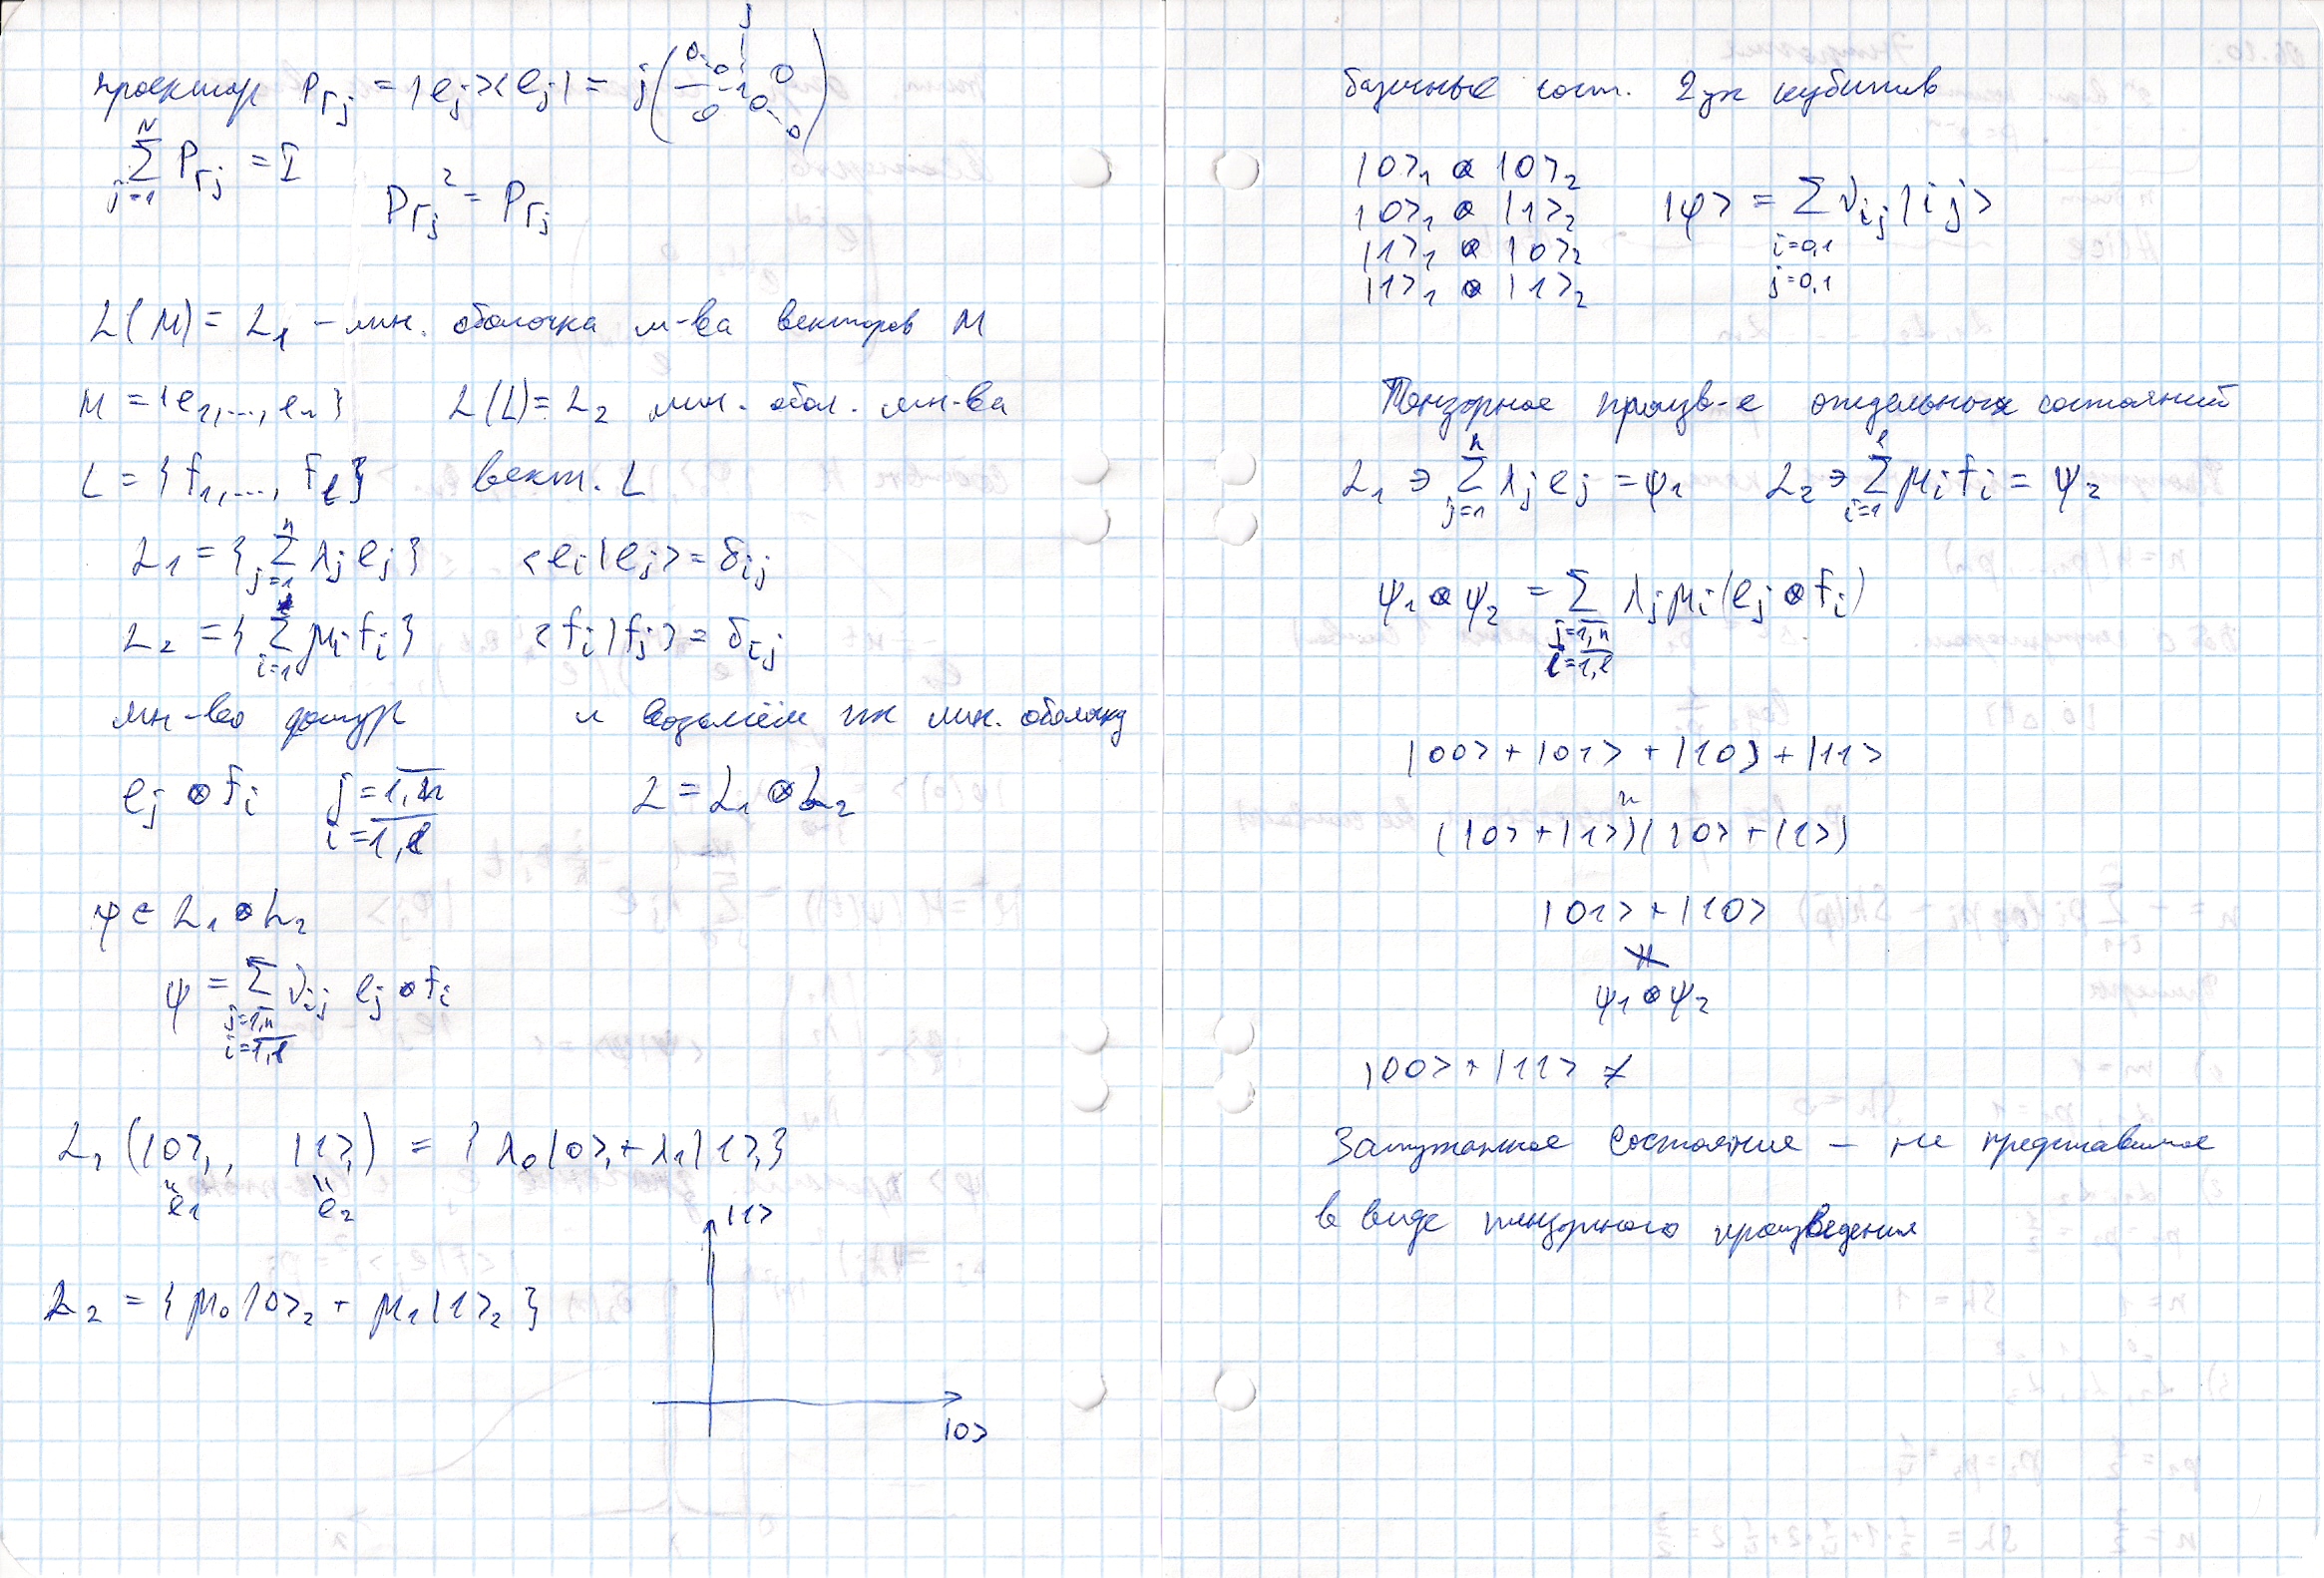 проектор Prj = |ej><ej| = j(0 0 1 0 0 0 0) j
N ∑ j=1 Prj = I
Prj² = Prj
L(M) = L1 – лин. оболочка м-ва векторов M
M = {e1,..., en} L(L) = L2 лин. обол. мн-ва
L = {f1,..., fl} вект. L
L1 = {n ∑ j=1 λj ej} <ei|ej> = δij
L2 = {l ∑ i=1 μi fi} <fi|fj> = δij
мн-во фигур и возьмём их лин. оболочку
ej ⊗ fi j = 1,n i = 1,l L = L1 ⊗ L2
ψ ∈ L1 ⊗ L2
ψ = ∑ j=1,n i=1,l νij ej ⊗ fi
L1 (|0>1, |1>1) = {λ0|0>1 + λ1|1>1}
"e1 "e2
|1>
L2 = {μ0|0>2 + μ1|1>2}
|0>
базисные сост. 2ух кубитов
|0>1 ⊗ |0>2
|0>1 ⊗ |1>2 |ψ> = ∑ i=0,1 j=0,1 νij |ij>
|1>1 ⊗ |0>2
|1>1 ⊗ |1>2
Тензорное произв-е отдельных состояний
L1 ∋ n ∑ j=1 λj ej = ψ1 L2 ∋ l ∑ i=1 μi fi = ψ2
ψ1 ⊗ ψ2 = ∑ j=1,n i=1,l λj μi (ej ⊗ fi)
|00> + |01> + |10> + |11>
"
(|0> + |1>)(|0> + |1>)
|01> + |10>
≠
ψ1 ⊗ ψ2
|00> + |11> ≠
Запутанное состояние – не представимое
в виде тензорного произведения